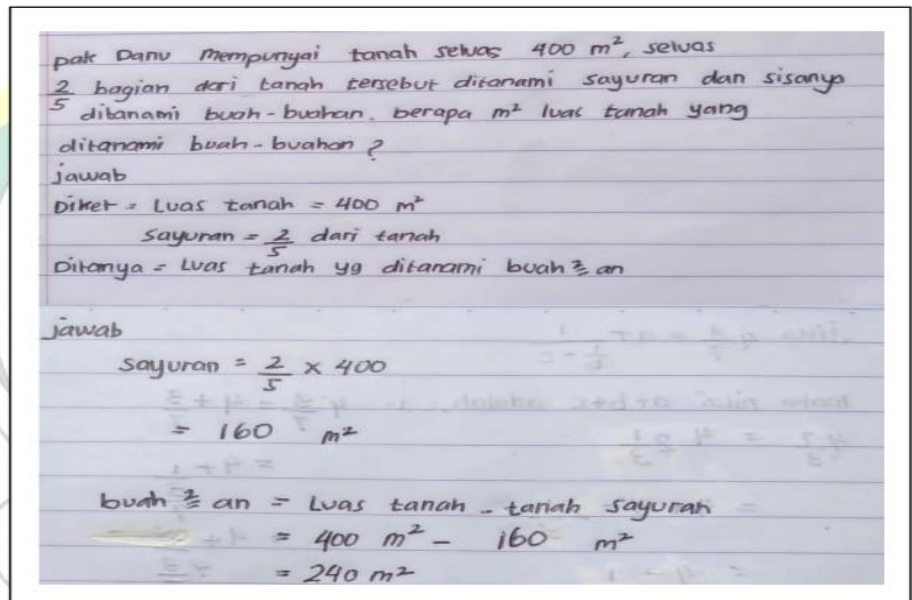 pak Danu mempunyai tanah seluas 400 m², seluas
2/5 bagian dari tanah tersebut ditanami sayuran dan sisanya
ditanami buah-buahan. berapa m² luas tanah yang
ditanami buah-buahan?
jawab
Diket = Luas tanah = 400 m²
Sayuran = 2/5 dari tanah
Ditanya = Luas tanah yg ditanami buah² an
jawab
Sayuran = 2/5 × 400
= 160 m²
buah² an = Luas tanah - tanah sayuran
= 400 m² - 160 m²
= 240 m²